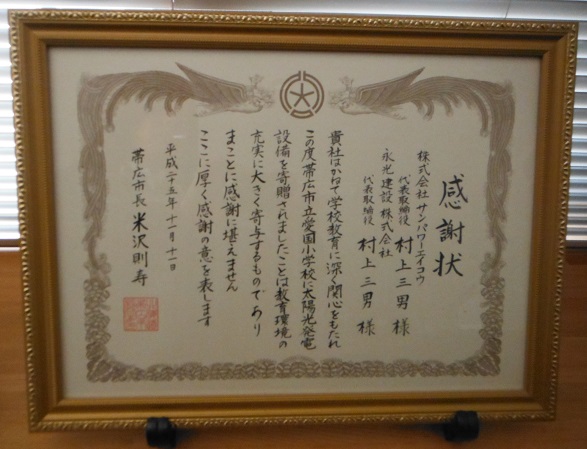 感謝状
株式会社 サンパワーエイコウ
代表取締役 村上三男 様
永光建設 株式会社
代表取締役 村上三男 様
貴社はかねて学校教育に深く関心をもたれ
この度帯広市立愛国小学校に太陽光発電
設備を寄贈されましたことは教育環境の
充実に大きく寄与するものであり
まことに感謝に堪えません
ここに厚く感謝の意を表します
平成二十五年十一月十一日
帯広市長 米沢則寿